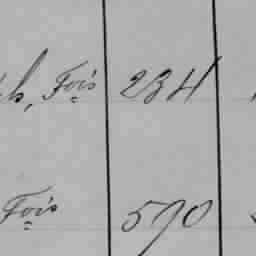 h, Fois 234
Fois 590